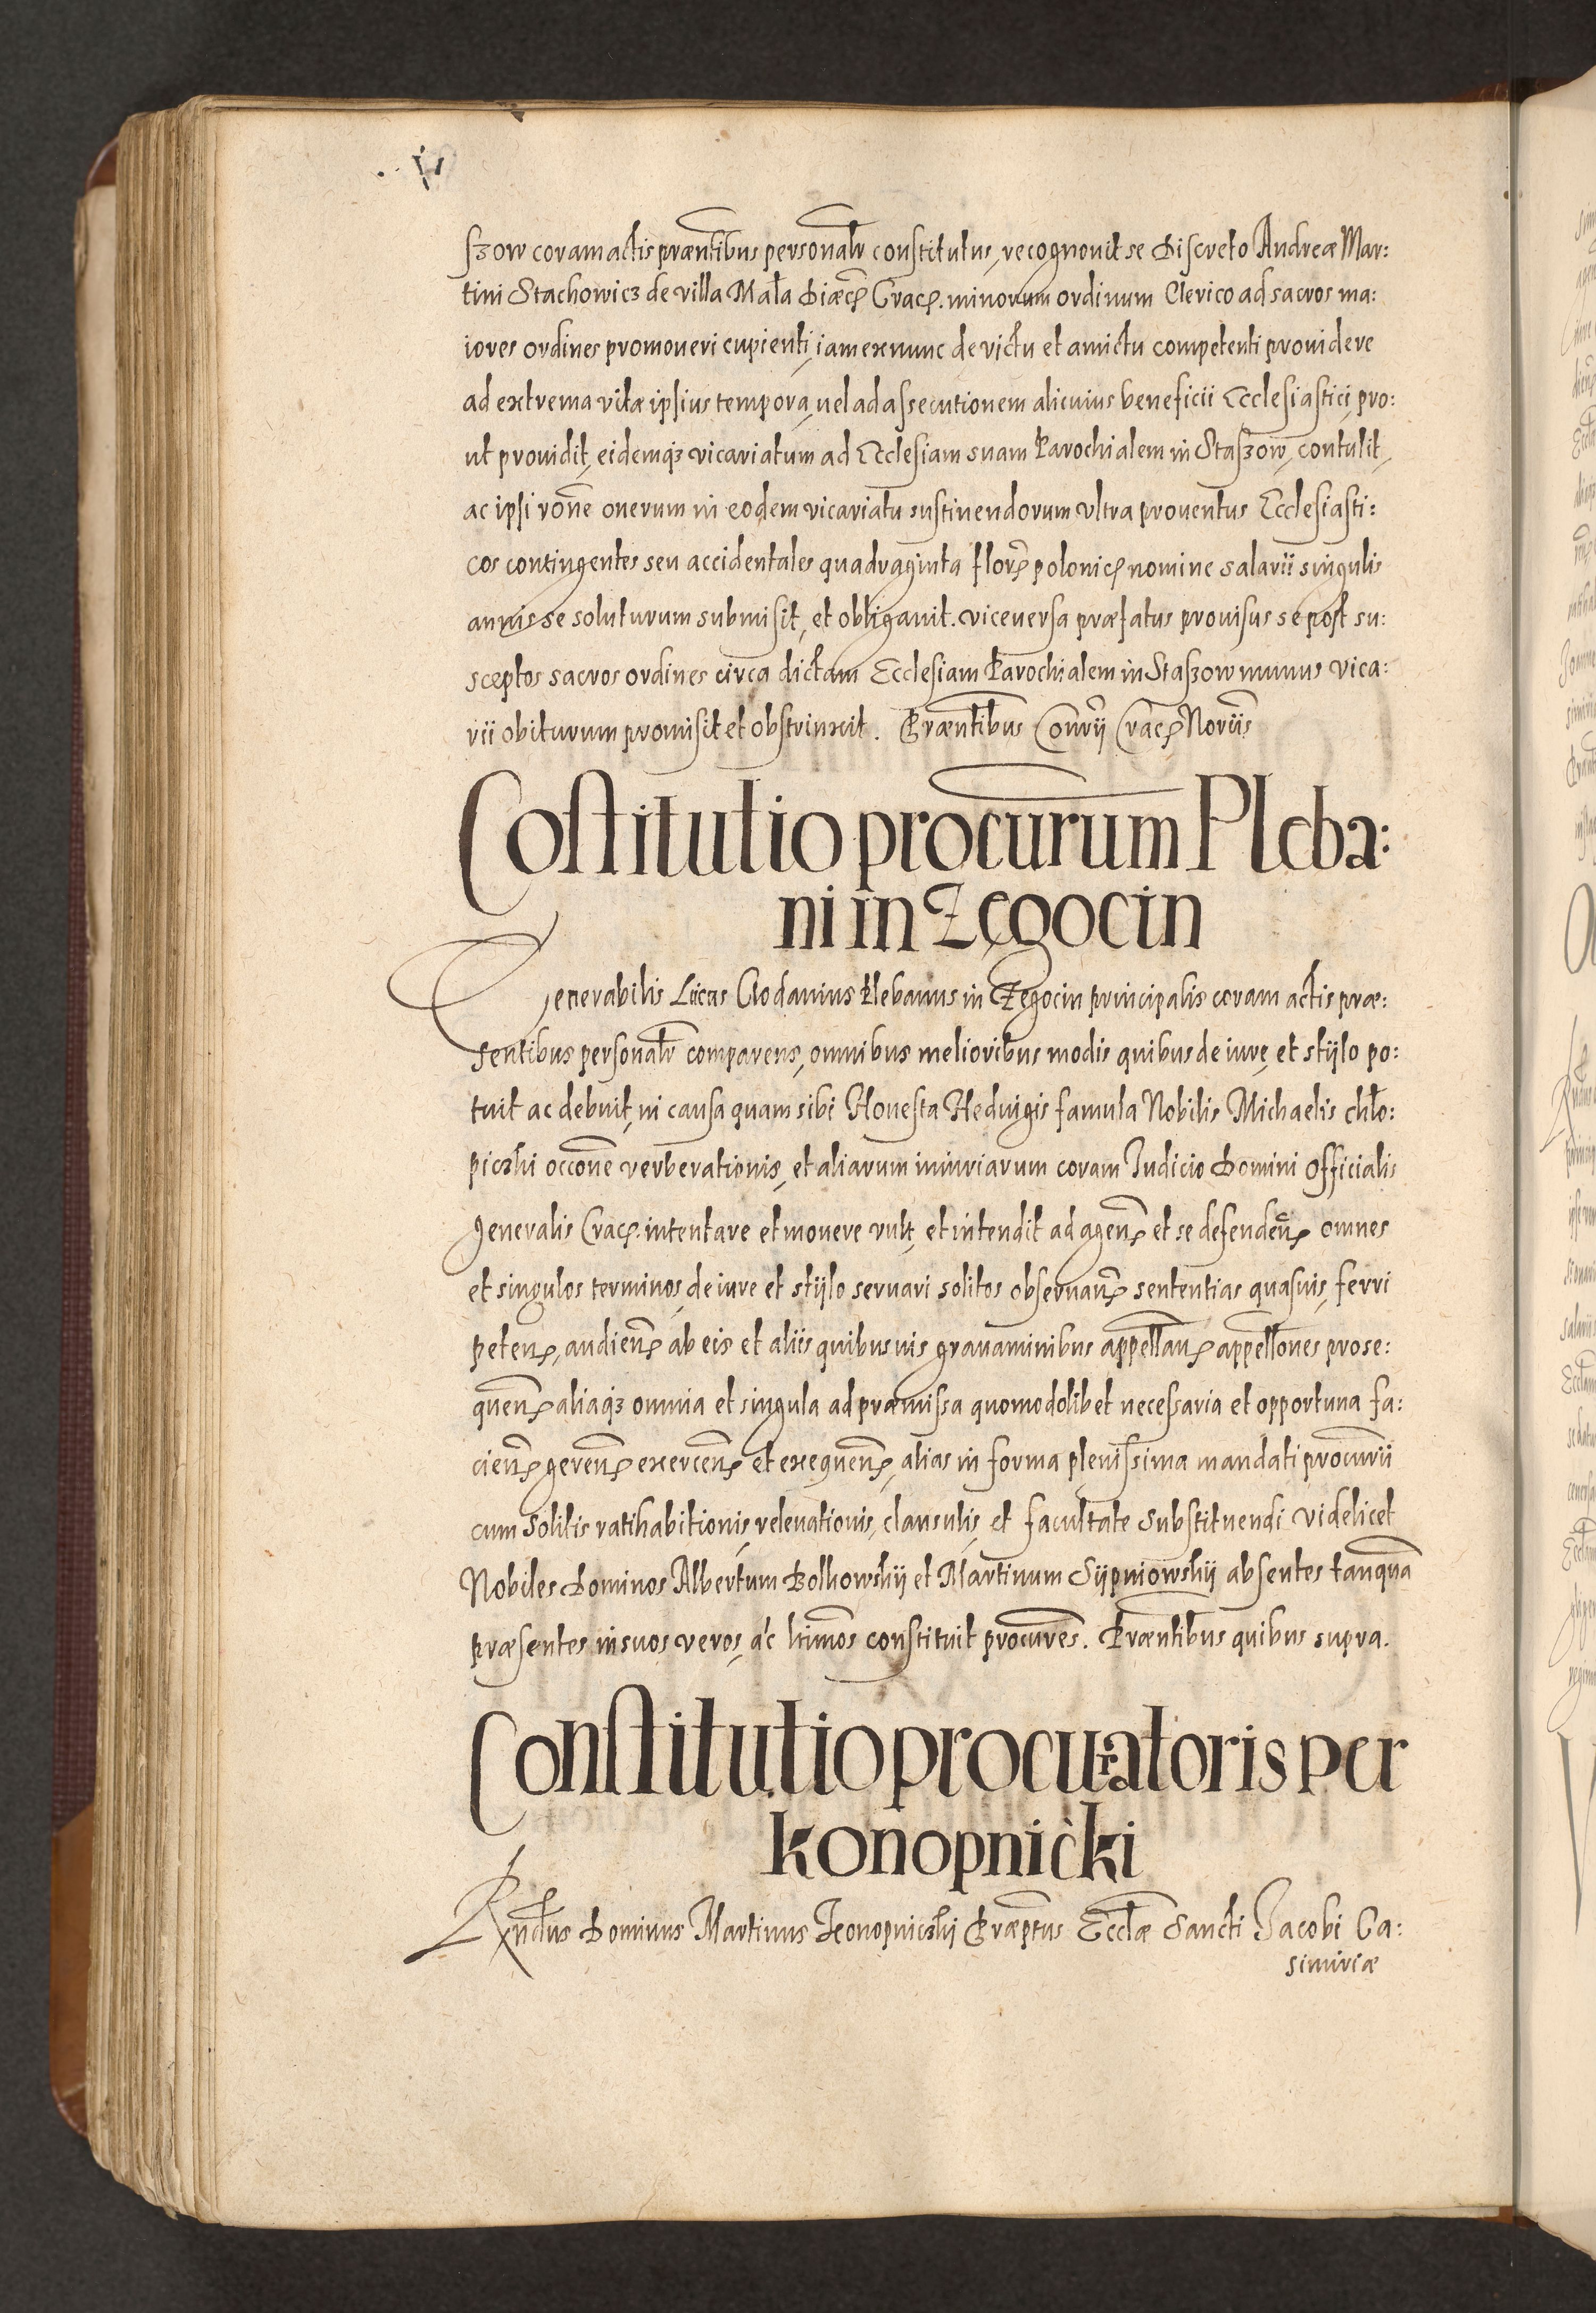 szow coram actis præntibus personalr constitutus, recognovit se Discreto Andreæ Mar:
tini Stachowicz de villa Mała Diæc. Crac. minorum ordinum Clerico ad sacros ma:
iores ordines promoveri cupienti, iam ex nunc de victu et amictu competenti providere
ad extrema vitæ ipsius tempora, vel ad assecutionem alicuius beneficii Ecclesiastici, pro:
ut providit, eidemq3 vicariatum ad Ecclesiam suam Parochialem in Staszow, contulit,
ac ipsi rōne onerum in eodem vicariatu sustinendorum ultra proventus Ecclesiasti:
cos contingentes seu accidentales quadraginta flor. polonic. nomine salarii singulis
annis se soluturum submisit, et obligavit. viceversa præfatus provisus se post su:
sceptos sacros ordines circa dictam Ecclesiam Parochialem in Staszow munus vica:
rii obiturum promisit et obstrinxit. Præntibus Conrīj Crac. Noriis
Costitutio procurum Pleba:
ni in Zęgocin
Venerabilis Lucas Clodavius Plebanus in Zegocin principalis coram actis præ:
sentibus personalr comparens, omnibus melioribus modis quibus de iure, et stijlo po:
tuit ac debuit, in causa quam sibi Honesta Hedvigis famula Nobilis Michaelis chło:
piczki occōne verberationis, et aliarum iniuriarum coram Iudicio Domini Officialis
generalis Crac. intentare et movere vult, et intendit ad agen. et se defenden. omnes
et singulos terminos, de iure et stijlo servari solitos observan. sententias quasvis, ferri
peten., audien. ab eis et aliis quibusvis gravaminibus appellan. appellones prose:
quen. aliaq3 omnia et singula ad præmissa quomodolibet necessaria et opportuna fa:
cien. geren. exercen. et exequen., alias in forma plenissima mandati procurii
cum solitis ratihabitionis, relevationis, clausulis, et facultate substituendi videlicet
Nobiles Dominos Albertum Bolkowskij et Martinum Sijpniowskij absentes tanquā
præsentes in suos veros, ac ltimos constituit procures. Præntibus quibus supra.
Constitutio procuratoris per
konopnicki
Rndus Dominus Martinus Konopniczki Præptus Ecclæ Sancti Jacobi Ca:
simiriæ